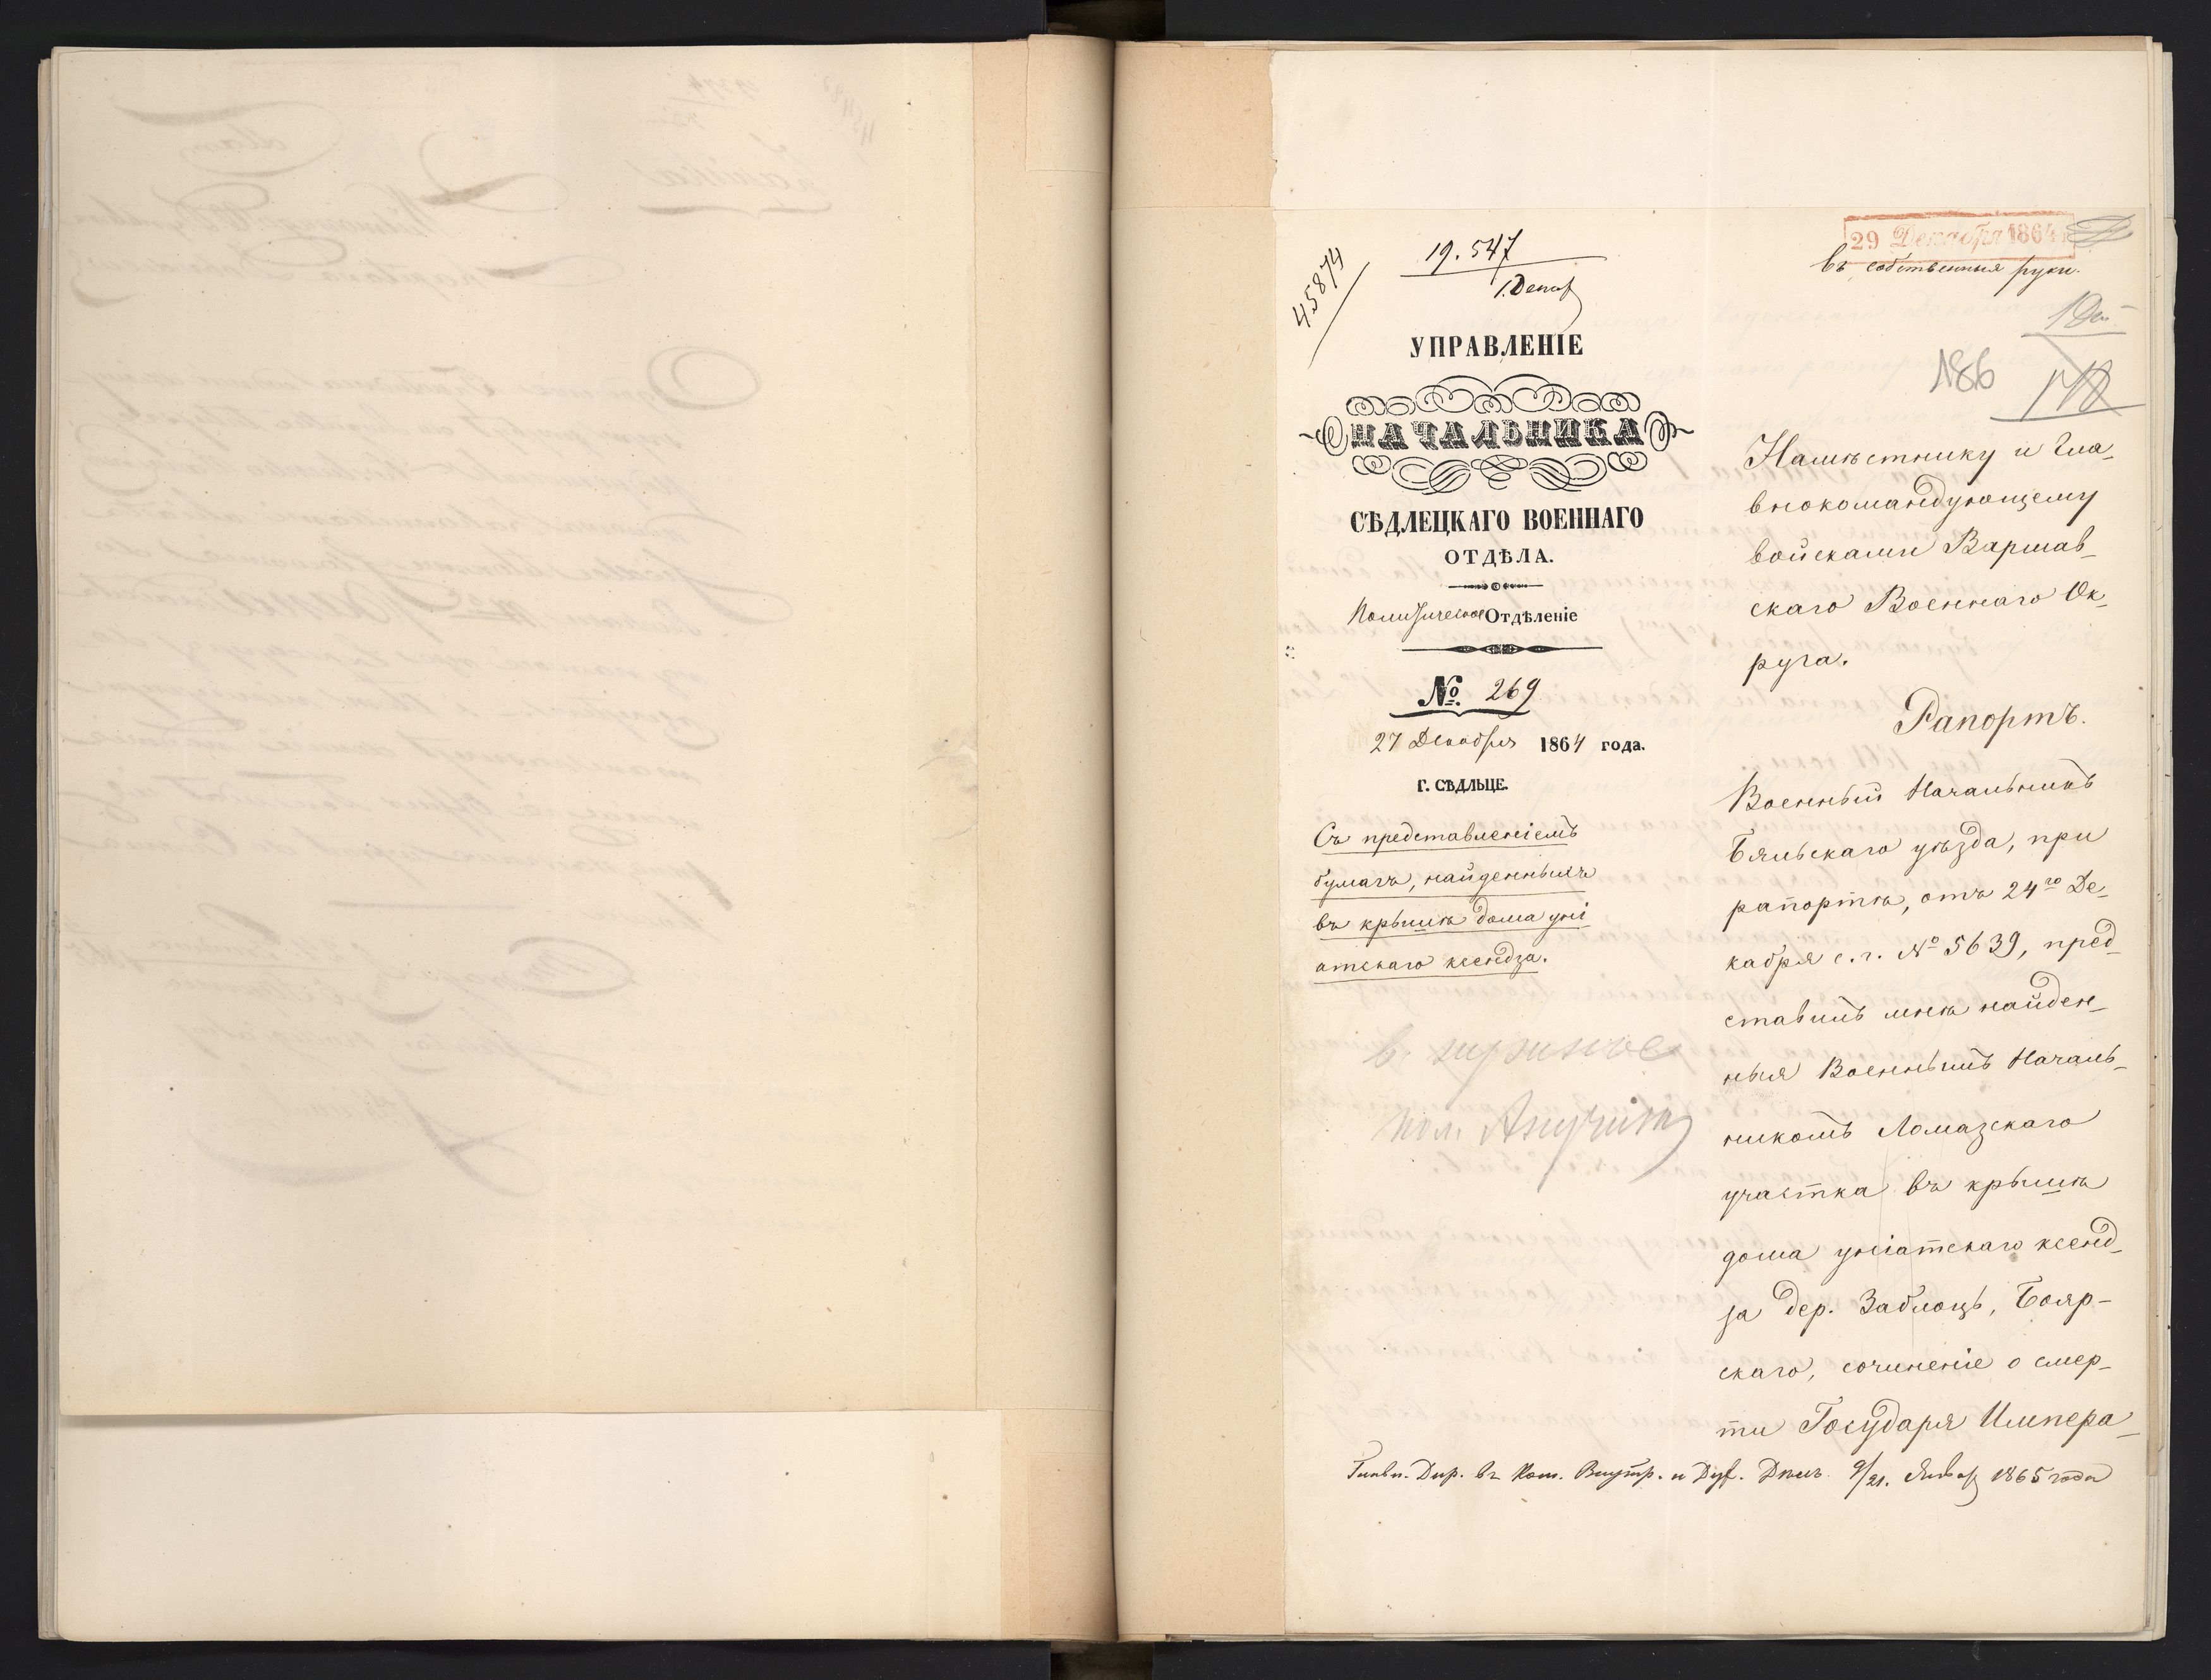 45874
19.547
1.Декаб
29 Декабря 1864
Въ собственныя руки.
186
УПРАВЛЕНІЕ
НАЧАЛЬНИКА
СѢДЛЕЦКАГО ВОЕННАГО
ОТДѢЛА.
Политическое Отдѣленіе
№ 269
27 Декабря 1864 года.
Г. СѢДЛЬЦЕ.
Съ представленіемъ
бумагъ, найденныхъ
въ крышѣ дома уні
атскаго ксендза.
Намѣстнику и Гла-
внокомандующему
войсками Варшав-
скаго Военнаго Ок-
руга.
Рапортъ.
Военный Начальникъ
Бяльскаго уѣзда, при
рапортѣ, отъ 24го Де-
кабря с.г. № 5639, пред-
ставилъ мнѣ найден-
ныя Военнымъ Началь-
никомъ Ломазскаго
участка въ крышѣ
дома уніатскаго ксенд-
за дер. Заблоць, Бояр-
скаго, сочиненіе о смер-
ти Государя Импера-
Главн. Дир. въ Ком. Внутр. и Дух. Дѣлъ 9/21. Январ 1865 года